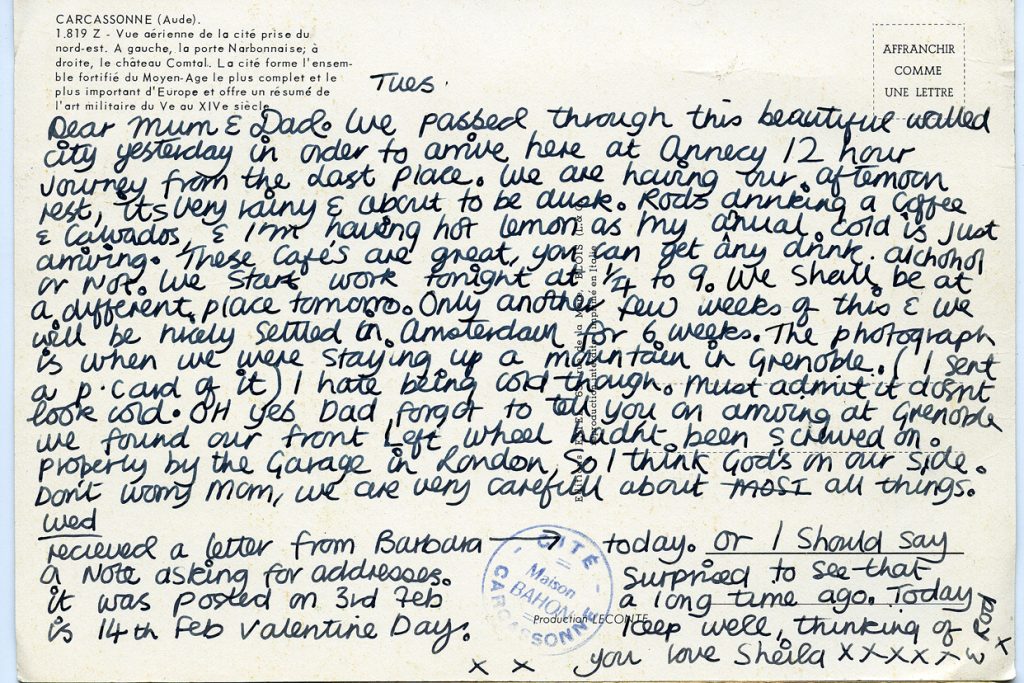 CARCASSONNE (Aude).
1.819 Z - Vue aérienne de la cité prise du
nord-est. A gauche, la porte Narbonnaise; à
droite, le château Comtal. La cité forme l'ensem-
ble fortifié du Moyen-Age le plus complet et le
plus important d'Europe et offre un résumé de
l'art militaire du Ve au XIVe siècle
AFFRANCHIR
COMME
UNE LETTRE
Tues.
Dear Mum & Dad. We passed through this beautiful walled
city yesterday in order to arrive here at Annecy 12 hour
journey from the last place. We are having our afternoon
rest, its very rainy & about to be dusk. Rods drinking a Coffee
& Calvados, & I'm having hot lemon as my anual cold is just
arriving. These Cafés are great, you can get any drink. alchohol
or Not. We start work tonight at ¼ to 9. We shall be at
a different place tomorro. Only another few weeks of this & we
will be nicely settled in Amsterdam for 6 weeks. The photograph
is when we were staying up a mountain in Grenoble. (I sent
a p.card of it) I hate being cold though. Must admit it dosnt
look cold. OH yes Dad forgot to tell you on arriving at Grenoble
we found our front Left wheel hadnt been screwed on.
properly by the Garage in London, So I think God's on our side.
Don't worry Mom, we are very carefull about MOST all things.
Wed
recieved a letter from Barbara → today. or I should say
a Note asking for addresses. Surprised to see that
it was posted on 3rd Feb a long time ago. Today
is 14th Feb Valentine Day. Keep well, thinking of
you love Sheila x x x x x x
x x
CITÉ
Maison
BAHON
CARCASSONNE
Production LECONTE